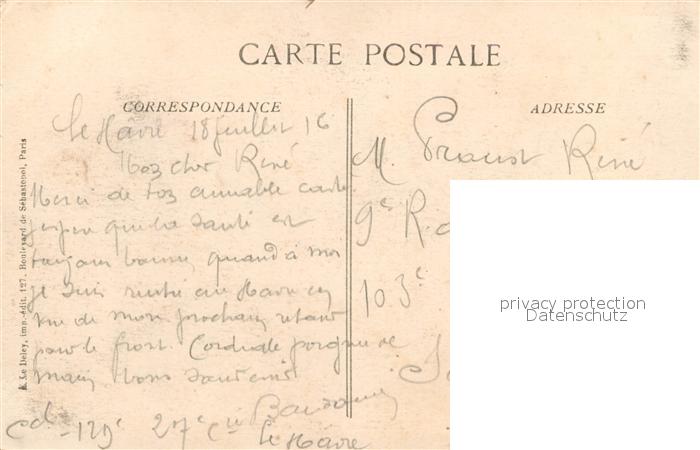 CARTE POSTALE
CORRESPONDANCE
ADRESSE
Le Hâvre 18 juillet 16
Mon cher René
Merci de ton aimable carte
j'espère que la santé est
toujours bonne, quand à moi
je suis rentré au Havre en
vue de mon prochain retour
pour le front. Cordiale poignée de
main, bons souvenirs
129e 27e Cie
Le Hâvre
M. René
9e R.
103e
E. Le Deley, imp.-édit. 127, Boulevard de Sébastopol, Paris
privacy protection
Datenschutz